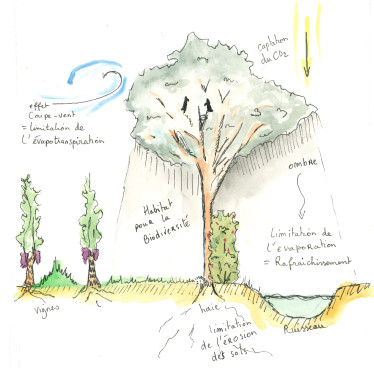 captation
du CO2
effet
Coupe-vent
= limitation de
l'évapotranspiration
ombre
Habitat
pour la
Biodiversité
Limitation de
l'évaporation
= Rafraîchissement
Vignes
haie
limitation
de l'érosion
des sols
Ruisseau